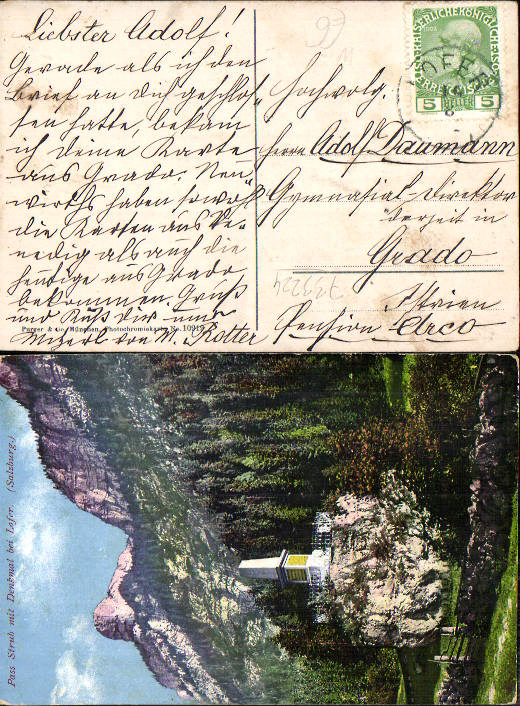 Liebster Adolf!
Gerade als ich den
Brief an Dich geschlos-
sen hatte, bekam
ich deine Karte
aus Grado. Neu-
wirths haben sowohl
die Karten aus Ve-
nedig als auch die
heutige aus Grado
bekommen. Gruß
und Kuß Dir und
von M. Rotter
Purger & Co., München, Photochromiekarte No. 10919
Hochwolg.
Herrn Adolf Daumann
Gymnasial-Direktor
derzeit in
Grado
Istrien
Pension Arco
KAISERLICHE KÖNIGLICHE
5 5
LOFER
Pass Strub mit Denkmal bei Lofer. (Salzburg.)